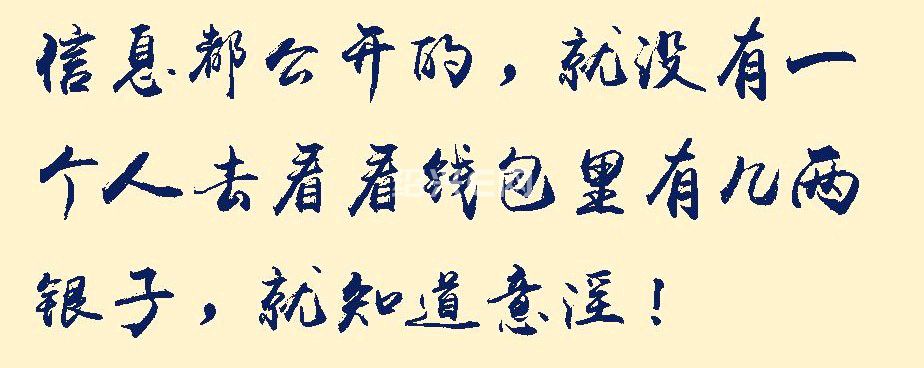 信息都公开的，就没有一
个人去看看钱包里有几两
银子，就知道意淫！